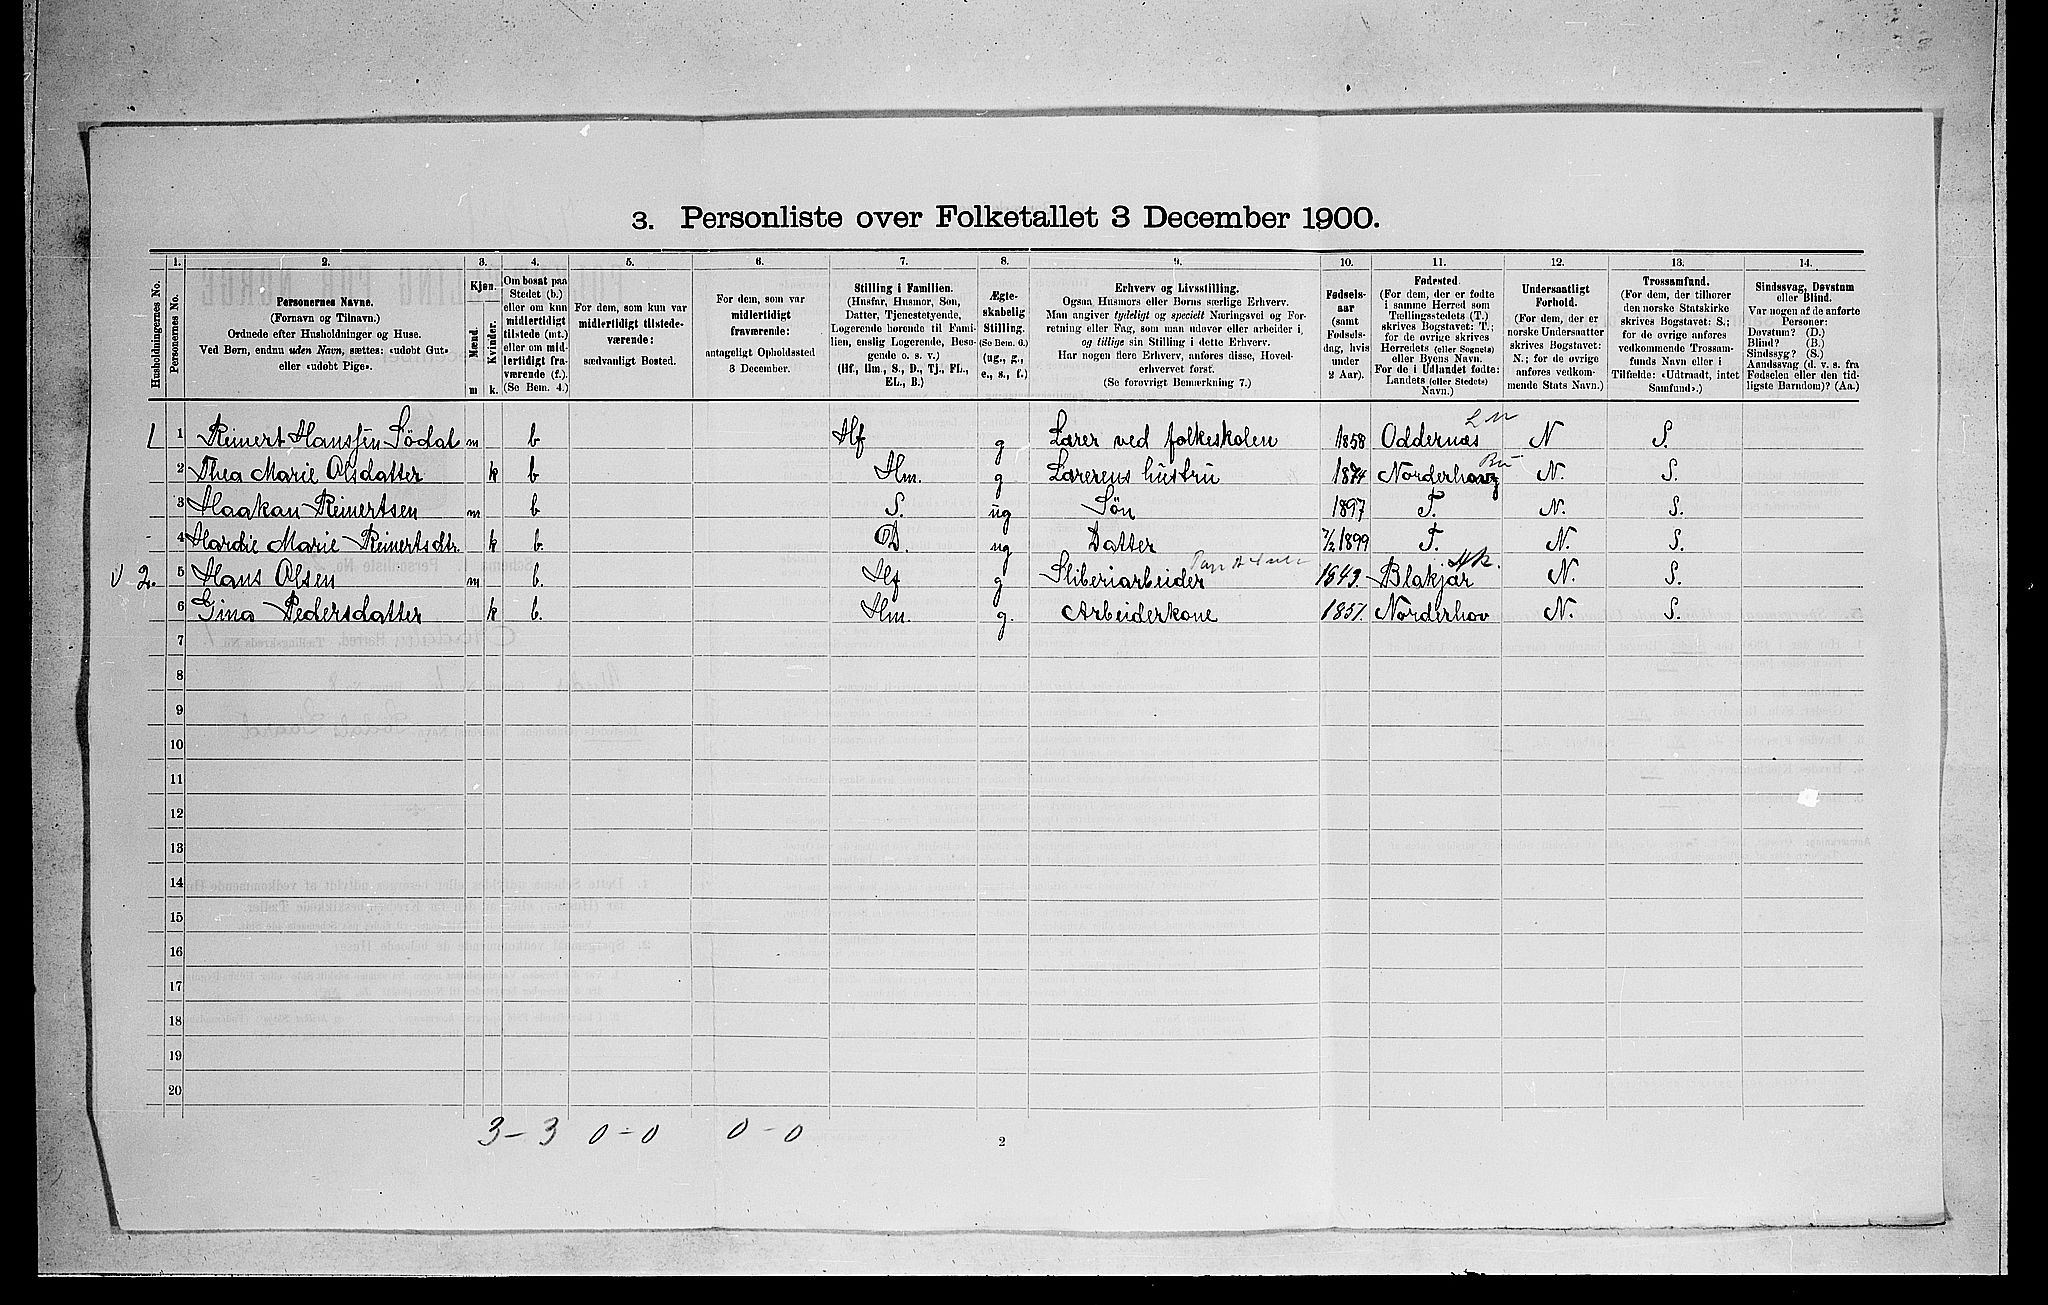 3. Personliste over Folketallet 3 December 1900.
1. 2. 3. 4. 5. 6. 7. 8. 9. 10. 11. 12. 13. 14.
Husholdningernes No.
Personernes No.
Personernes Navne.
(Fornavn og Tilnavn.)
Ordnede efter Husholdninger og Huse.
Ved Børn, endnu uden Navn, sættes: «udøbt Gut»
eller «udøbt Pige».
Kjøn.
Mænd.
Kvinder.
m k.
Om bosat paa
Stedet (b.)
eller om kun
midlertidigt
tilstede (mt.)
eller om mid-
lertidigt fra-
værende (f.).
(Se Bem. 4.)
For dem, som kun var
midlertidigt tilstede-
værende:
sædvanligt Bosted.
For dem, som var
midlertidigt
fraværende:
antageligt Opholdssted
3 December.
Stilling i Familien.
(Husfar, Husmor, Søn,
Datter, Tjenestetyende,
Logerende hørende til Fami-
lien, enslig Logerende, Besø-
gende o. s. v.)
(Hf, Hm., S., D., Tj., FL.,
EL., B.)
Ægte-
skabelig
Stilling.
(Se Bem. 6.)
(ug., g.,
e., s., f.)
Erhverv og Livsstilling.
Ogsaa Husmors eller Børns særlige Erhverv.
Man angiver tydeligt og specielt Næringsvei og For-
retning eller Fag, som man udøver eller arbeider i,
og tillige sin Stilling i dette Erhverv.
Har nogen flere Erhverv, anføres disse, Hoved-
erhvervet først.
(Se forøvrigt Bemærkning 7.)
Fødsels-
aar
(samt
Fødsels-
dag, hvis
under
2 Aar).
Fødested.
(For dem, der er fødte
i samme Herred som
Tællingsstedets (T.)
skrives Bogstavet: T.;
for de øvrige skrives
Herredets (eller Sognets)
eller Byens Navn.
For de i Udlandet fødte:
Landets (eller Stedets)
Navn.)
Undersaatligt
Forhold.
(For dem, der er
norske Undersaatter
skrives Bogstavet:
N.; for de øvrige
anføres vedkom-
mende Stats Navn.)
Trossamfund.
(For dem, der tilhører
den norske Statskirke
skrives Bogstavet: S.;
for de øvrige anføres
vedkommende Trossam-
funds Navn eller i
Tilfælde: «Udtraadt, intet
Samfund».)
Sindssvag, Døvstum
eller Blind.
Var nogen af de anførte
Personer:
Døvstum? (D.)
Blind? (B.)
Sindssyg? (S.)
Aandssvag (d. v. s. fra
Fødselen eller den tid-
ligste Barndom)? (Aa.)
1 1 Reinert Hanssen Södal m b Hf g Lærer ved folkeskolen 1858 Oddernæs N S.
2 Thea Marie Olsdatter k b Hm. g Lærerens hustru 1874 Norderhov Bu N. S.
3 Haakan Reinertsen m b S. ug Søn 1897 T. N. S.
4 Hardie Marie Reinertsdtr. k b. D. ug Datter 1899 T. N. S.
v 2. 5 Hans Olsen m b. Hf g Sliberiarbeider 1843. Blakjar Ak. N. S.
6 Gina Pedersdatter k b. Hm. g. Arbeiderkone 1857. Norderhov N. S.
7
8
9
10
11
12
13
14
15
16
17
18
19
20
3 – 3 0 – 0 0 – 0
2